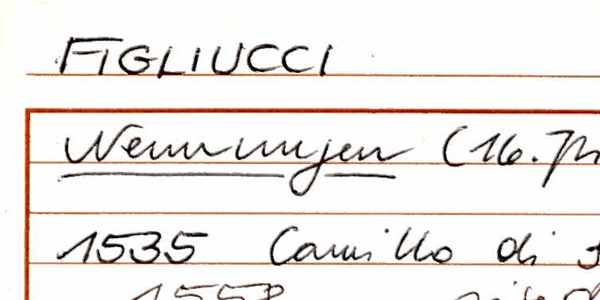 FIGLIUCCI
Nennungen (16.
1535 Camillo di
1558